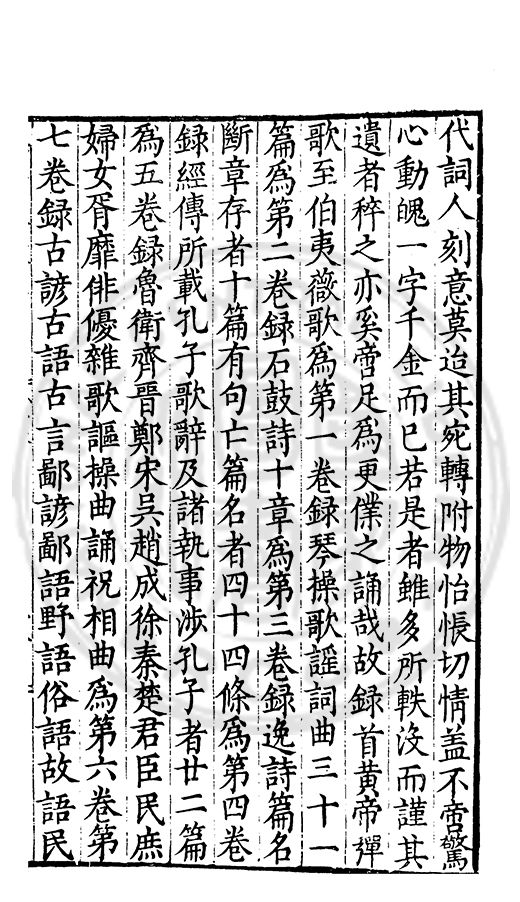 代詞人刻意莫迨其宛轉附物怡悵切情盖不啻驚
心動魄一字千金而已若是者雖多所軼沒而謹其
遺者稡之亦奚啻足為更僕之誦哉故録首黄帝彈
歌至伯夷薇歌為第一卷録琴操歌謡詞曲三十一
篇為第二卷録石鼓詩十章為第三卷録逸詩篇名
斷章存者十篇有句亡篇名者四十四條為第四卷
録經傳所載孔子歌辭及諸執事涉孔子者廿二篇
為五卷録魯衛齊晉鄭宋吳趙成徐秦楚君臣民庶
婦女胥靡俳優雜歌謳操曲誦祝相曲為第六卷第
七卷録古諺古語古言鄙諺鄙語野語俗語故語民